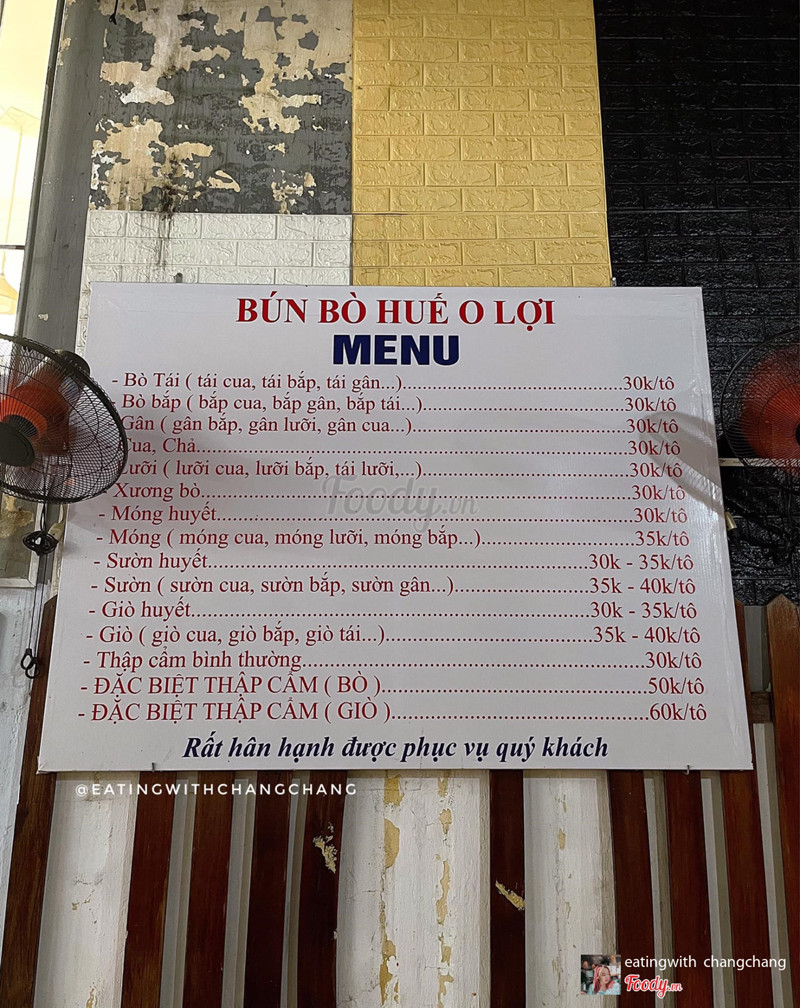 BÚN BÒ HUẾ O LỢI
MENU
- Bò Tái ( tái cua, tái bắp, tái gân...)......................................30k/tô
- Bò bắp ( bắp cua, bắp gân, bắp tái...)...................................30k/tô
Gân ( gân bắp, gân lưỡi, gân cua...).....................................30k/tô
Cua, Chả..........................................................................30k/tô
Lưỡi ( lưỡi cua, lưỡi bắp, tái lưỡi,...)...................................30k/tô
- Xương bò........................................................................30k/tô
- Móng huyết.....................................................................30k/tô
- Móng ( móng cua, móng lưỡi, móng bắp...).........................35k/tô
- Sườn huyết..............................................................30k - 35k/tô
- Sườn ( sườn cua, sườn bắp, sườn gân...).......................35k - 40k/tô
- Giò huyết.................................................................30k - 35k/tô
- Giò ( giò cua, giò bắp, giò tái...)...................................35k - 40k/tô
- Thập cẩm bình thường.........................................................30k/tô
- ĐẶC BIỆT THẬP CẨM ( BÒ )............................................50k/tô
- ĐẶC BIỆT THẬP CẨM ( GIÒ )...........................................60k/tô
Rất hân hạnh được phục vụ quý khách
Foody.vn
@EATINGWITHCHANGCHANG
eatingwith changchang
Foody.vn